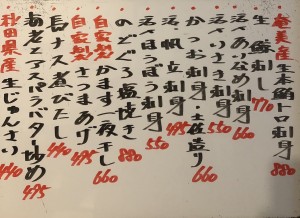 奄美産 生本鮪トロ刺身 880
生鯵刺し 770
活〆あなめ刺身 660
活〆いさき刺身 550
かつお刺身 土佐造り 660
活帆立刺身 495
活〆ほうぼう刺身 550
のどぐろ塩焼き 880
自家製かます一夜干し 660
自家製さつまあげ
長ナス煮びたし 440
海老とアスパラバター炒め 495
秋田県産 生じゅんさい 440